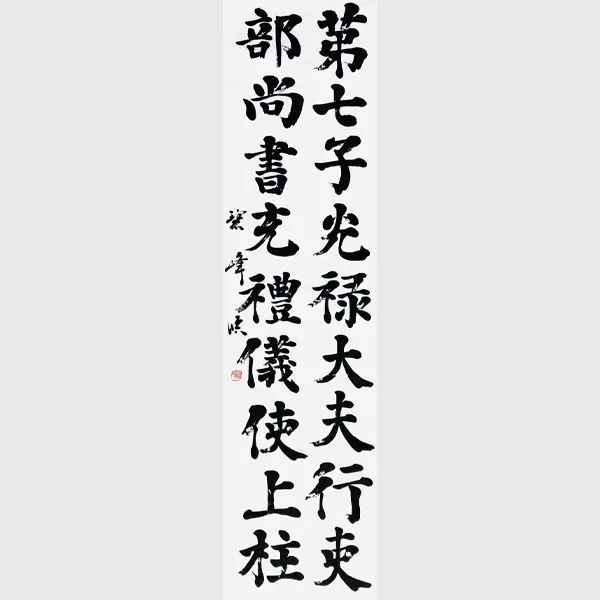 第七子光禄大夫行吏
部尚書充禮儀使上柱